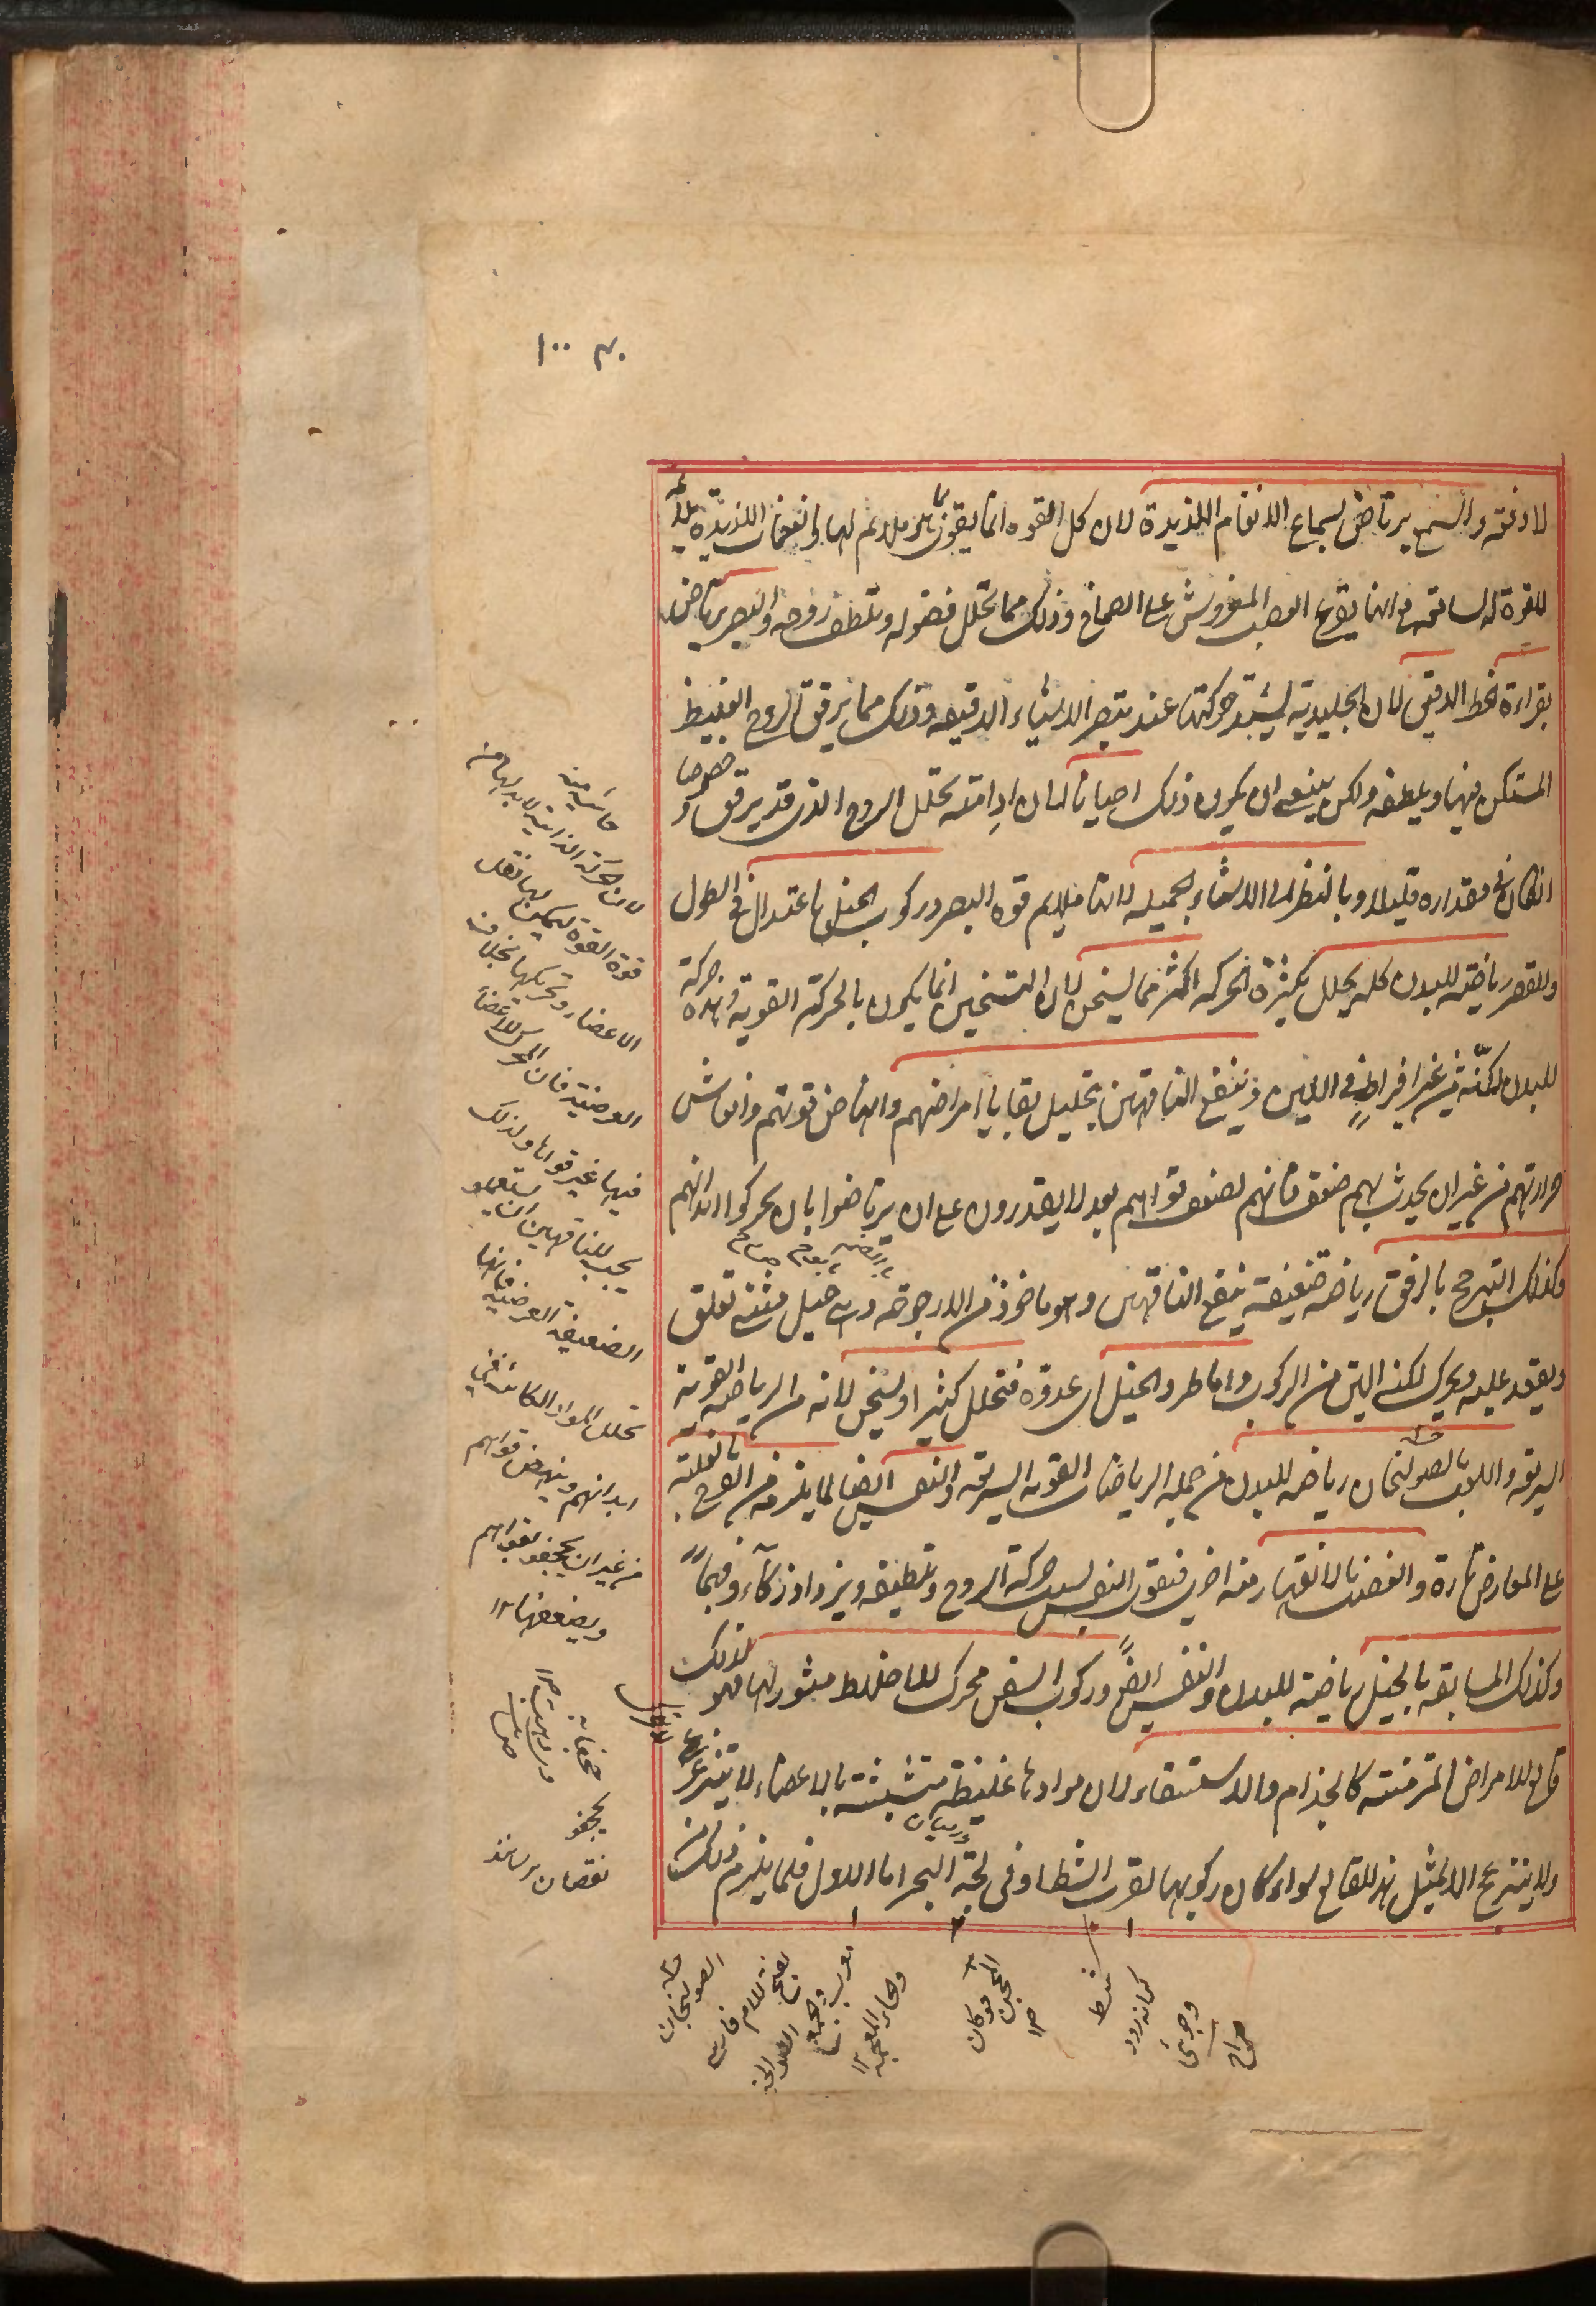 ١٠٠
لا دفعة والسمع يرتاض بسماع الانغام اللذيذة لان كل القوه انما يقوى بما هو ملايم لها والنغمات اللذيذة ملايمة
للقوة السامعة فانها يقرع العصب المفروش على الصماخ وذلك مما يحلل فضوله ويلطف روحه والبصر يرتاض
بقراءة الخط الدقيق لان الجليدية يشتد حركتها عند تبصر الاشياء الدقيقه وذلك مما يرقق الروح الغليظ
المستكن فيها ويلطفه ولكن ينبغى ان يكون ذلك احيانا لان ادامته تحلل الروح الذى قد يرقق وخصوصا
ان كان فى مقداره قليلا وبالنظر الى الاشياء الجميله لانها يلايم قوه البصر وركوب الخيل باعتدال فى الطول
والقصر رياضة للبدن كله يحلل بكثرة الحركه اكثر مما يسخن لان التسخين انما يكون بالحركة القوية وهذه حركة
للبدن لكنه من غير افراط فى اللين وينفع الناقهين بتحليل بقايا امراضهم وانهاض قوتهم وانعاش
حرارتهم من غير ان يحدث بهم ضعف فانهم لضعف قواهم بعد لا يقدرون على ان يرتاضوا بان يحركوا ابدانهم
وكذلك الترجح بالرفق رياضة ضعيفة ينفع الناقهين وهو ماخوذ من الارجوحة وهى حبل مثنى تعلق
ويقعد عليه ويحرك لكنه الين من الركوب واما طرد الخيل اى عدوه فتحلل كثيرا ويسخن لانه من الرياضة القوية
السريعة واللعب بالصولجان رياضة للبدن من جملة الرياضات القوية السريعة والنفس ايضا لما يلزمه من الفرح بالغلبة
على المعارض تارة والغضب بالانقهار منه اخرى فيقوى النفس بسبب حركة الروح وتلطيفه ويزداد ذكاء وفهما
وكذلك المسابقة بالخيل رياضة للبدن والنفس ايضا وركوب السفن محرك للاخلاط مثور لها فهو لذلك
قالع للامراض المزمنة كالجذام والاستسقاء لان موادها غليظة متشبثة بالاعضاء لا يتزعزع
ولا ينزعج الا بمثل هذا القالع سواء كان ركوبها بقرب الشط او فى لجة البحر اما الاول فلما يلزم ذلك من
درميان
حاشية منه
لان الحركة الذاتية لابد لها من
قوة القوة ليمكن لها نقل
الاعضاء وتحريكها بخلاف
العرضية فان المحرك للاعضاء
فيها غير قواها ولذلك
يجب للناقهين ان يستعملوا
الضعيفة العرضية فانها
تحلل المواد الكائنة فى
ابدانهم وينهض قواهم
من غير ان يجحف بقواهم
ويضعفها ١٢
يجحف
نقصان رساند
الصولجان
بفتح اللام فارسى
وجمعه
شط
كرانه رود
وجوى
صراح